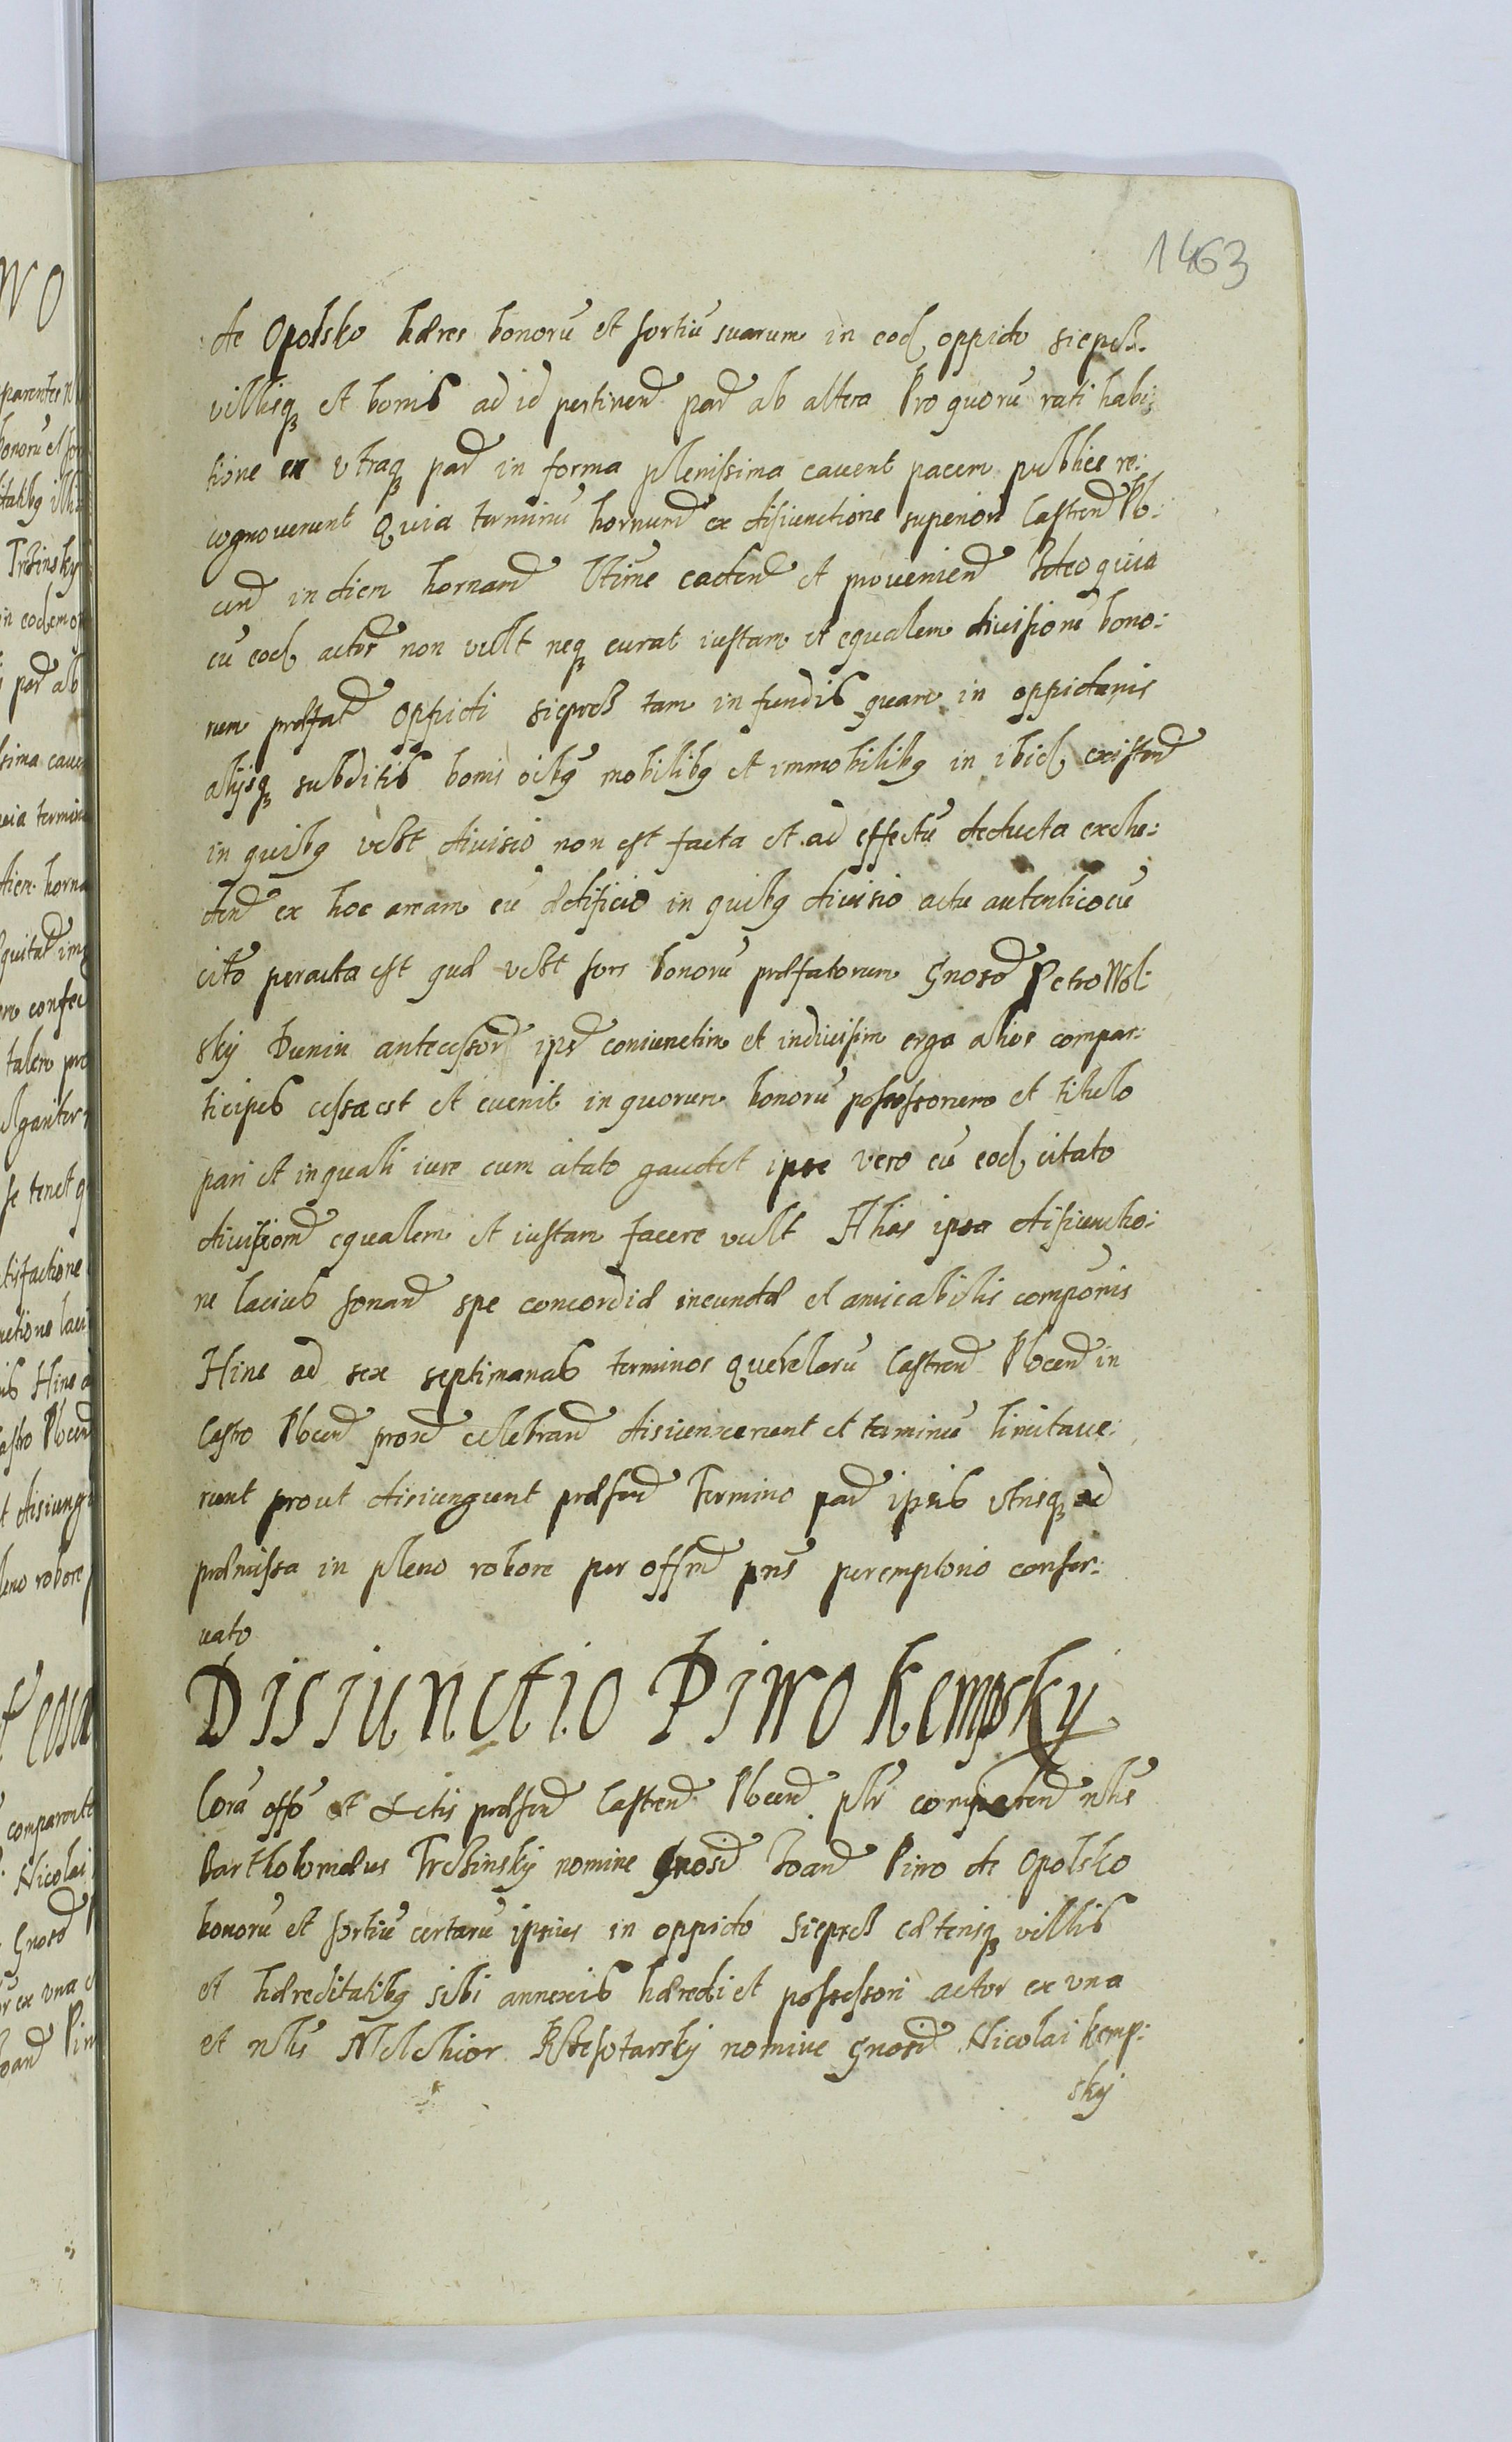 1463
de Opolsko hæres bonorū et sortiū suarum in eod oppido siepcz
villisq et bonis ad id pertinen par ab altera Pro quorū rati habi:
tione ex vtraq par in forma plenissima cauent pacem publice re:
cognouerunt Quia terminū hornum ex disiunctione superiori Castren Pl:
cen in diem hornam Vltime caden et prouenien Ideo quia
cū eod actor non vult neq curat iustam et equalem diuisionē bono:
rum præfat oppidi siepcz tam in fundis quam in oppidanis
alijsq subditis bonis oībq mobilibq et immobilibq in ibid existen
in quibq vcz diuisio non est facta et ad effectū deducta exclu:
den ex hoc arcam cū ædificio in quibq diuisio actu autentico cū
cito peracta est quæ vcz sors bonorū præfatorum Gnoso Petro Wol:
sky Dunin antecessor ips coniunctim et indiuisim erga alios compar:
ticipes cessa est et euenit in quorum bonorū possessionem et titulo
pari et inquali iure cum citato gaudet ipse vero cū eod citato
diuisiom equalem et iustam facere vult Alias ipsa disiunctio:
ne lacius sonan spe concordiæ ineundæ et amicabilis componis
Hinc ad sex septimanas terminos querelarū Castren Plocen in
Castro Plocen prox celebran disiunxerunt et terminū limitaue:
runt prout disiungunt præsen Termino par ipsis vtrisq ad
præmissa in pleno robore per offm pns peremptorio conser:
uato
Disiunctio Piwo Kempsky
Corā offo et Actis præsen Castren Plocen plr comparen nlis
Bartholomæus Trczinsky nomine Gnosi Ioan Piwo de Opolsko
bonorū et sortiū certarū ipsius in oppido siepcz cæterisq villis
et hæreditatibq sibi annexis hæredi et possessori actor ex vna
et nlis Melchior nomine Gnosi Nicolai Kemp:
sky